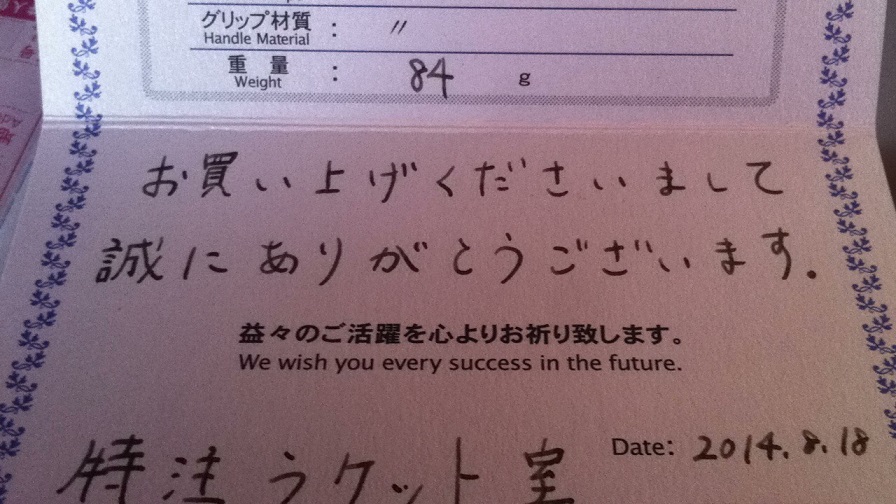 グリップ材質 : 〃
Handle Material
重量 : 84 g
Weight
お買い上げくださいまして
誠にありがとうございます。
益々のご活躍を心よりお祈り致します。
We wish you every success in the future.
Date: 2014.8.18
特注ラケット室